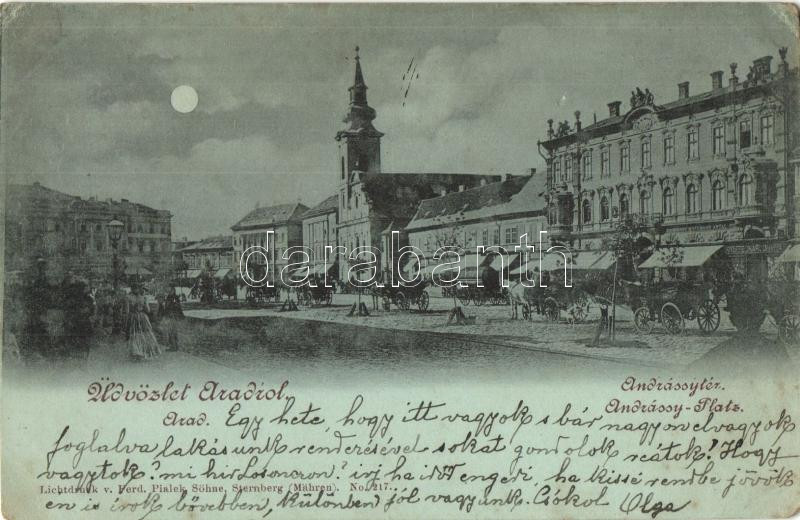 darabanth
Üdvözlet Aradról.
Arad.
Andrássytér.
Andrássy-Platz.
Egy hete, hogy itt vagyok s bár nagyon el vagyok
foglalva lakásunk rendezésével sokat gondolok reátok! Hogy
vagytok? mi hir Losoncon? irj ha idő engedi, ha kissé rendbe jövök
Lichtdruck v. Ferd. Pialek Söhne, Sternberg (Mähren). No. 217.
en is irok bővebben, különben jól vagyunk. Csókol Olga